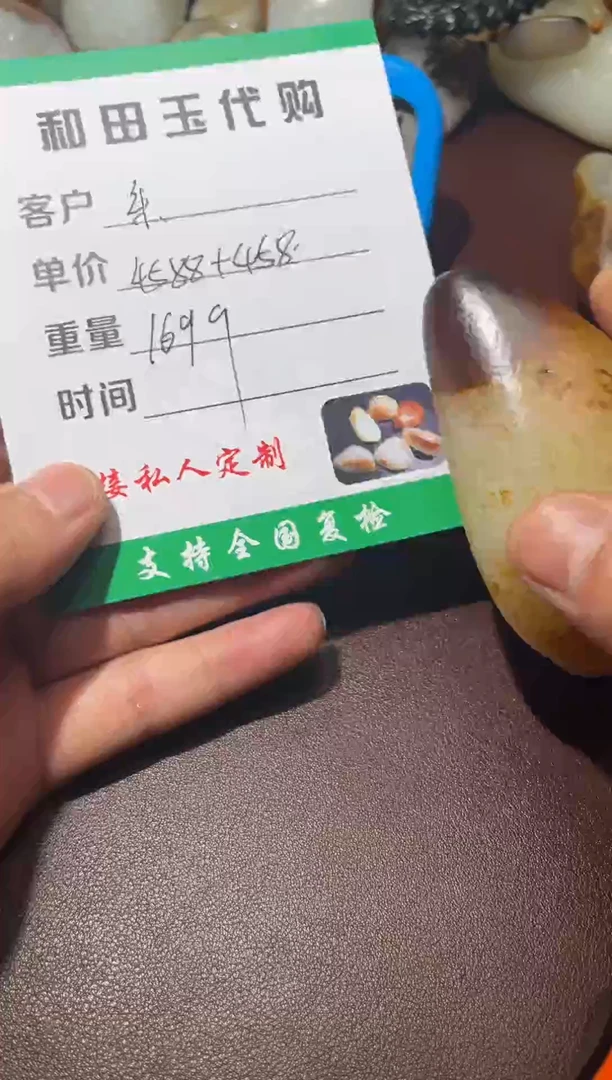 和田玉代购
客户
单价 4588+458.
重量 169g
时间
接私人定制
支持全国复检